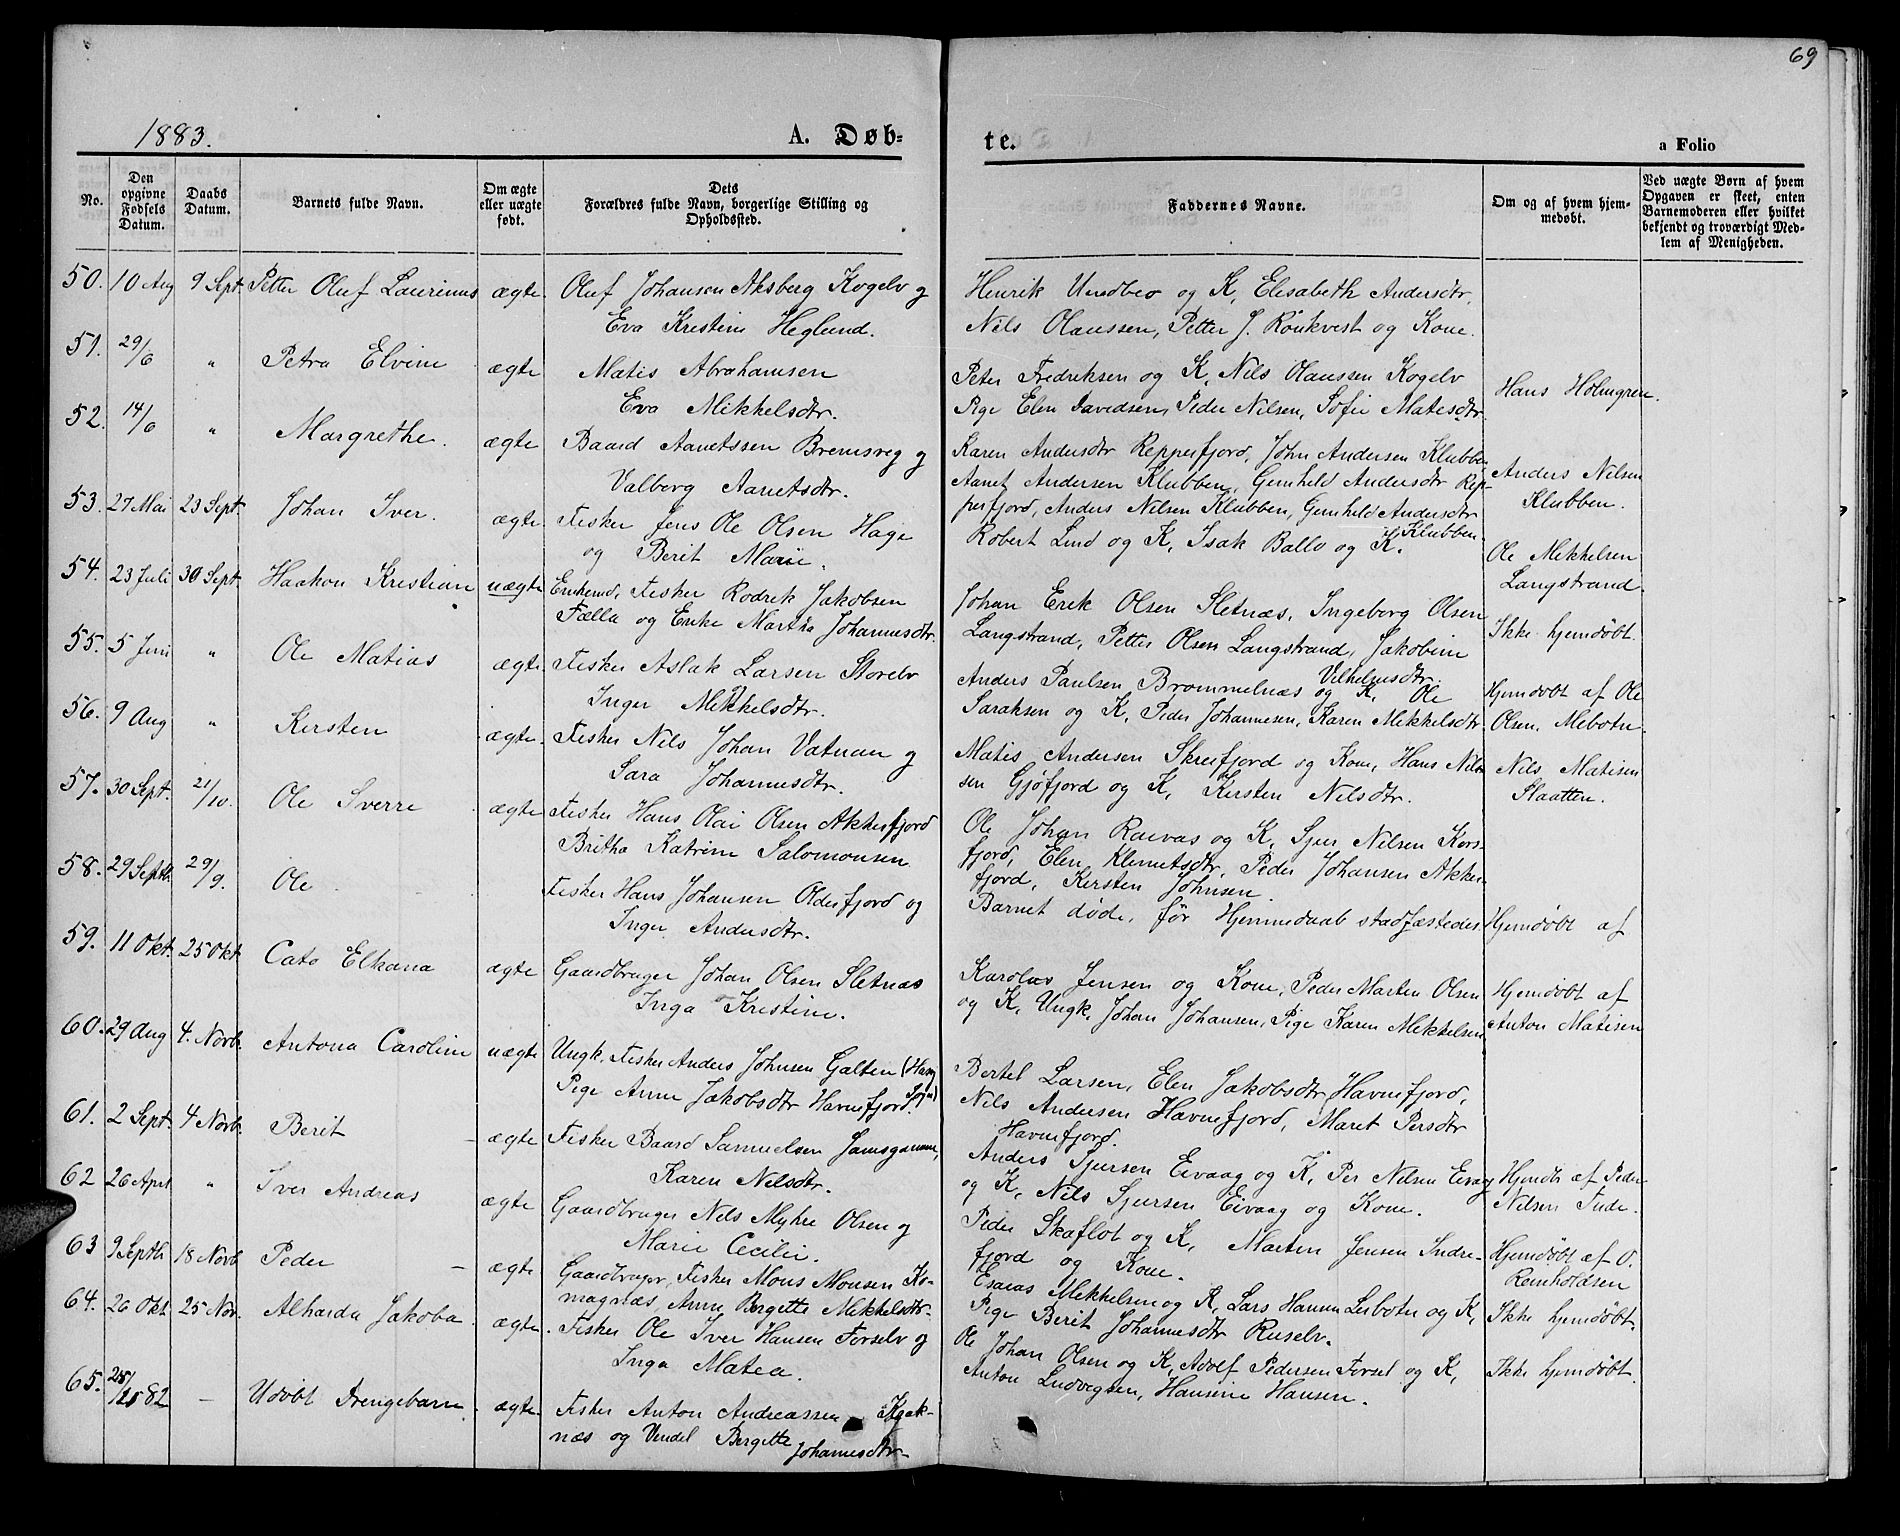 69
1883.
A. Døb=
te.
a Folio
No.
Den opgivne Fødsels Datum.
Daabs Datum.
Barnets fulde Navn.
Om ægte eller uægte født.
Dets Forældres fulde Navn, borgerlige Stilling og Opholdssted.
Faddernes Navne.
Om og af hvem hjemmedøbt.
Ved uægte Børn af hvem Opgaven er skeet, enten Barnemoderen eller hvilket bekjendt og troværdigt Medlem af Menigheden.
50. 10 Aug 9 Sept. Petter Oluf Laurinus ægte Oluf Johansen Aksberg Kogelv og
Eva Kristine Heglund.
Henrik og K, Elisabeth Andersdtr,
Nils Olaussen, Petter J. Rönkvest og Kone.
51. 29/6 " Petra Elvine ægte Matis Abrahamsen
Eva Mikkelsdtr.
Peter Fredriksen og K, Nils Olaussen Kogelv
Pige Elen Davidsen, Peder Nilsen, Sofie Matisdtr
Hans Holmgren.
52. 14/6 " Margrethe. ægte Baard Aanetssen Bremsveg og
Valberg Aanetsdtr.
Karen Andersdtr Repperfjord, John Andersen Klubben
Aanet Andersen Klubben, Gunhild Andersdtr Rep-
perfjord, Anders Nilsen Klubben, Gunhild Andersdtr
Klubben
Anders Nilsen
Klubben.
53. 27 Mai 23 Sept. Johan Iver. ægte Fisker Jens Ole Olsen Hage
og Berit Marie.
Robert Lind og K, Isak Ballo og K.
Ole Mikkelsen
Langstrand.
54. 23 Juli 30 Sept. Haakon Kristian uægte Enkemd, Fisker Rodrik Jakobsen
Fælla og Enke Martha Johannesdtr.
Johan Erik Olsen Sletnæs, Ingeborg Olsen
Langstrand, Petter Olsen Langstrand, Jakobine
Vilhelmsdtr.
Ikke hjemdøbt.
55. 5 Juni " Ole Matias ægte Fisker Aslak Larsen Storelv
Inger Mikkelsdtr.
Anders Paulsen Brommelnæs og K, Ole
Saraksen og K, Peder Johannesen, Karen Mikkelsdtr
Hjemdøbt af Ole
Olsen, Mebotn.
56. 9 Aug " Kersten ægte. Fisker Nils Johan Vatnan og
Sara Johannesdtr.
Matis Andersen Skreifjord og Kone, Hans Nil-
sen Gjöfjord og K, Kersten Nilsdtr.
Nils Matisen
Slaatten.
57. 30 Sept. 21/10. Ole Sverre ægte Fisker Hans Olai Olsen Akkerfjord
Britha Katrine Salomonsen
Ole Johan Raevas og K, Sjur Nilsen Kors-
fjord, Elen Klemetsdtr, Peder Johansen Akker-
fjord, Kersten Johnsen.
58. 29 Septb. 29/9. Ole Fisker Hans Johansen Olderfjord og
Inger Andersdtr.
Barnet døde, før Hjemmedaab stadfæstedes
Hjemdøbt af
59. 11 Okt. 25 Okt Cato Elkana ægte Gaardbruger Johan Olsen Sletnæs
Inga Kristine.
Karolus Jensen og Kone, Peder Marten Olsen
og K, Ungk. Johan Johansen, Pige Karen Mikkelsen
Hjemdøbt af
Anton Matisen
60. 29 Aug 4. Novb. Antona Caroline uægte Ungk. Fisker Anders Johnsen Galten (Hasv.
Pige Anne Jakobsdtr Havnefjord. Sogn)
Bertel Larsen, Elen Jakobsdtr Havnefjord,
Nils Andersen Havnefjord, Maret Persdtr
Havnefjord.
61. 2 Sept. 4 Novb. Berit ægte Fisker Baard Samuelsen
Karen Nilsdtr.
Anders Sjursen Eivaag og K, Per Nilsen Eivaag
og K, Nils Sjursen Eivaag og Kone.
Hjemdb af Peder
Nilsen Tude.
62 26 April " Iver Andreas ægte Gaardbruger Nils Myhre Olsen og
Marie Cecilie.
Peder Skaflot og K, Marten Jensen Indre-
fjord og Kone.
Hjemdøbt af O.
Remholdsen
63 9 Septb 18 Novb Peder ægte Gaardbruger, Fisker Mons Monsen Ko-
magnæs, Anne Bergitte Mikkelsdtr.
Esaias Mikkelsen og K, Lars Hansen Lerbotn og K,
Pige Berit Johannesdtr Ruselv.
Ikke hjemdøbt.
64. 26 Okt. 25 Nov. Alharda Jakoba ægte. Fisker Ole Iver Hansen Forselv og
Inga Matea.
Ole Johan Olsen og K, Adolf Pedersen Forsel og K,
Anton Ludvegsen, Hansine Hansen.
Ikke hjemdøbt.
65. 82 – Udöbt Drengebarn ægte. Fisker Anton Andreassen Kjak-
næs og Vendel Bergitte Johannesdtr